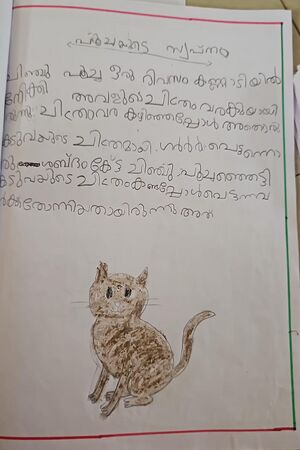 പൂച്ചയുടെ സ്വപ്നം
ചിഞ്ചു പൂച്ച ഒരു ദിവസം കണ്ണാടിയിൽ
നോക്കി അവളുടെ ചിത്രം വരക്കുകയായി
രുന്നു. ചിത്രംവര കഴിഞ്ഞപ്പോൾ അതൊരു
കടുവയുടെ ചിത്രമായി. ഗർർർ പെട്ടന്നൊ
രു ശബ്ദം കേട്ട് ചിഞ്ചു പൂച്ചഞെട്ടി
കടുവയുടെ ചിത്രംകണ്ടപ്പോൾ പെട്ടന്നവ
ൾക്ക് തോന്നിയതായിരുന്നു അത്